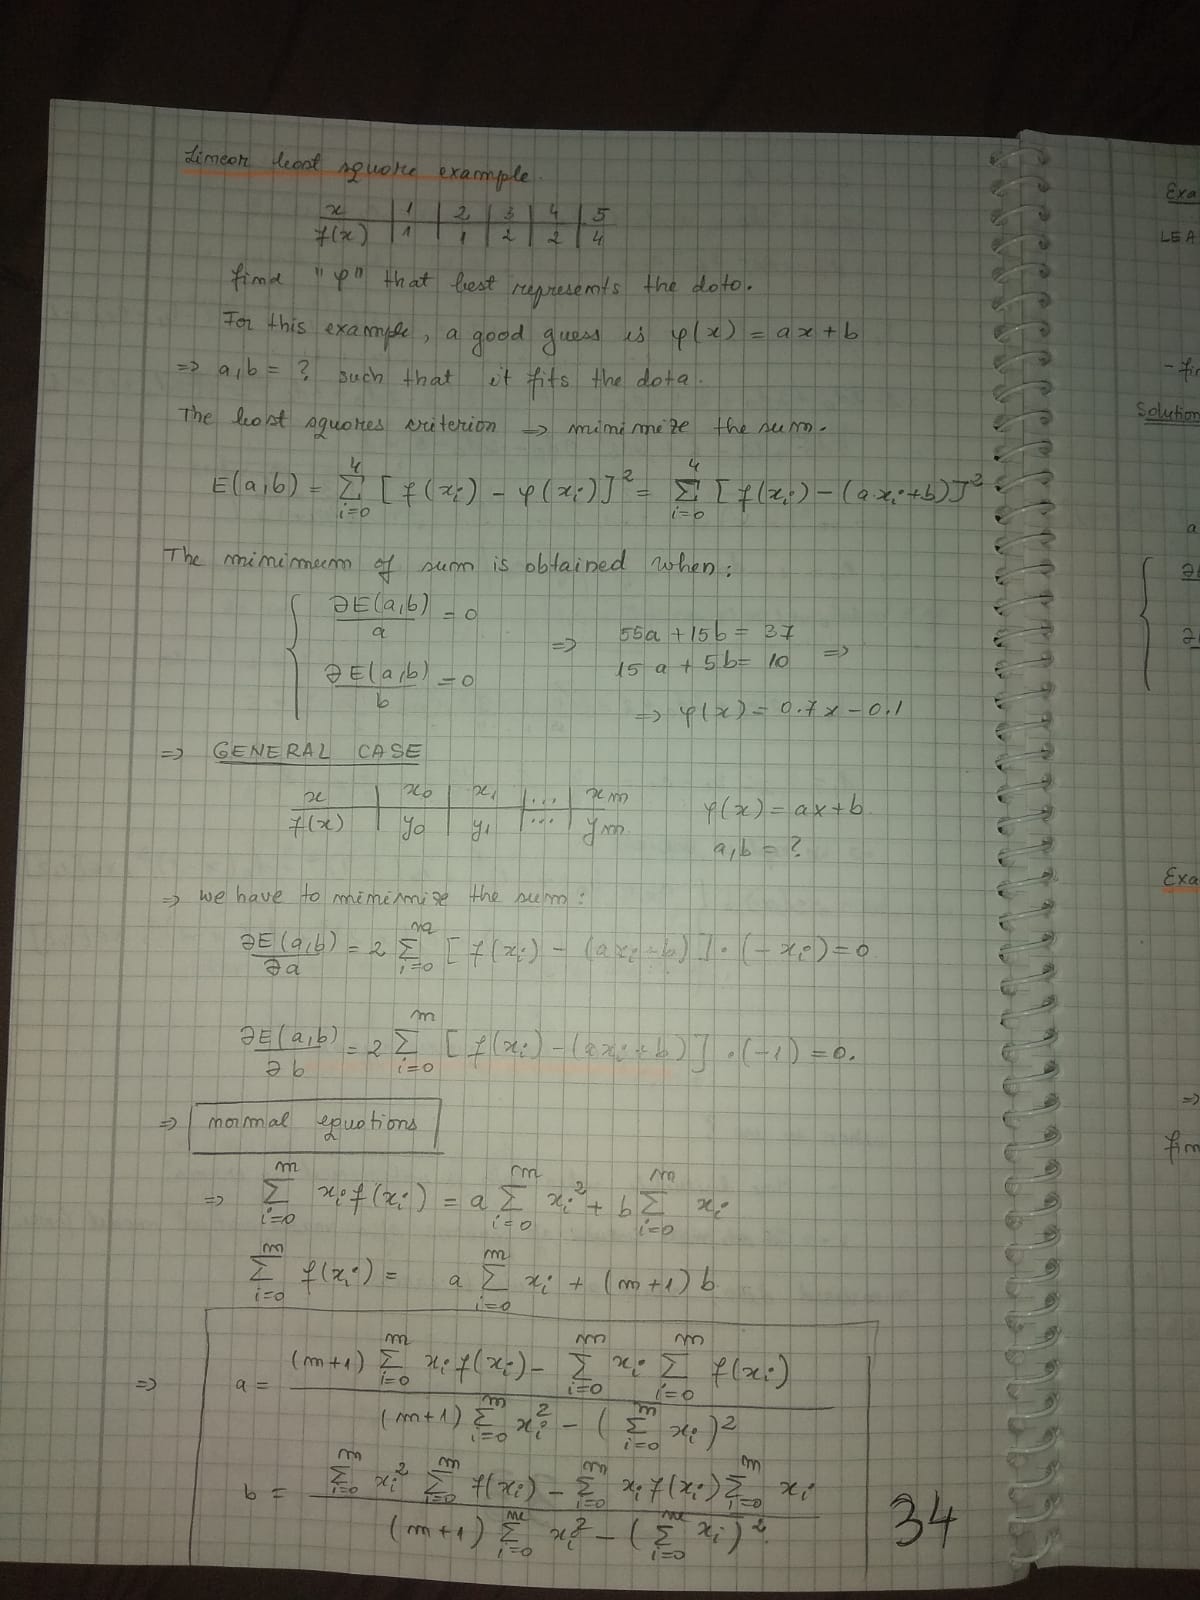 Linear least square example.
x | 1 | 2 | 3 | 4 | 5
f(x) | 1 | 1 | 2 | 2 | 4
find "φ" that best represents the data.
For this example, a good guess is φ(x) = ax + b
=> a,b = ? such that it fits the data.
The least squares criterion => minimize the sum.
E(a,b) = Σ_{i=0}^{4} [f(x_i) - φ(x_i)]² = Σ_{i=0}^{4} [f(x_i) - (a·x_i+b)]²
The minimum of sum is obtained when:
{ ∂E(a,b)/a = 0
∂E(a,b)/b = 0
=> 55a + 15b = 37
15a + 5b = 10 =>
=> φ(x) = 0.7x - 0.1
=> GENERAL CASE
x | x₀ | x₁ | ... | x_m
f(x) | y₀ | y₁ | ... | y_m
φ(x) = ax + b
a,b = ?
=> we have to minimize the sum:
∂E(a,b)/∂a = 2 Σ_{i=0}^{m} [f(x_i) - (ax_i+b)]·(-x_i) = 0
∂E(a,b)/∂b = 2 Σ_{i=0}^{m} [f(x_i) - (ax_i+b)]·(-1) = 0.
=> normal equations
=> Σ_{i=0}^{m} x_i f(x_i) = a Σ_{i=0}^{m} x_i² + b Σ_{i=0}^{m} x_i
Σ_{i=0}^{m} f(x_i) = a Σ_{i=0}^{m} x_i + (m+1) b
=> a = ((m+1) Σ_{i=0}^{m} x_i f(x_i) - Σ_{i=0}^{m} x_i Σ_{i=0}^{m} f(x_i)) / ((m+1) Σ_{i=0}^{m} x_i² - (Σ_{i=0}^{m} x_i)²)
b = (Σ_{i=0}^{m} x_i² Σ_{i=0}^{m} f(x_i) - Σ_{i=0}^{m} x_i f(x_i) Σ_{i=0}^{m} x_i) / ((m+1) Σ_{i=0}^{m} x_i² - (Σ_{i=0}^{m} x_i)²)
34
Exa
LEA
Solution
a
Exa
=>